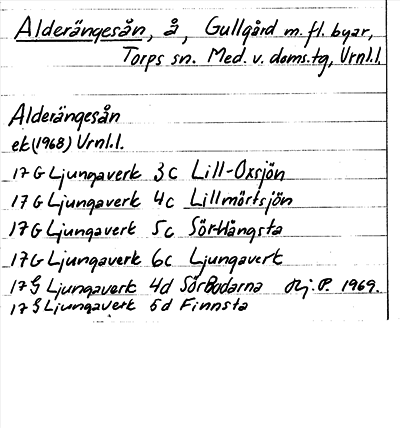 Alderängesån, å, Gullgård m. fl. byar,
Torps sn. Med. v. doms.tg, Vrnl.l.
Alderängesån
ek (1968) Vrnl.l.
17 G Ljungaverk 3c Lill-Oxsjön
17 G Ljungaverk 4c Lillmörtsjön
17 G Ljungaverk 5c Sörhångsta
17 G Ljungaverk 6c Ljungaverk
17 G Ljungaverk 4d SörBodarna Hj. P. 1969.
17 G Ljungaverk 5d Finnsta